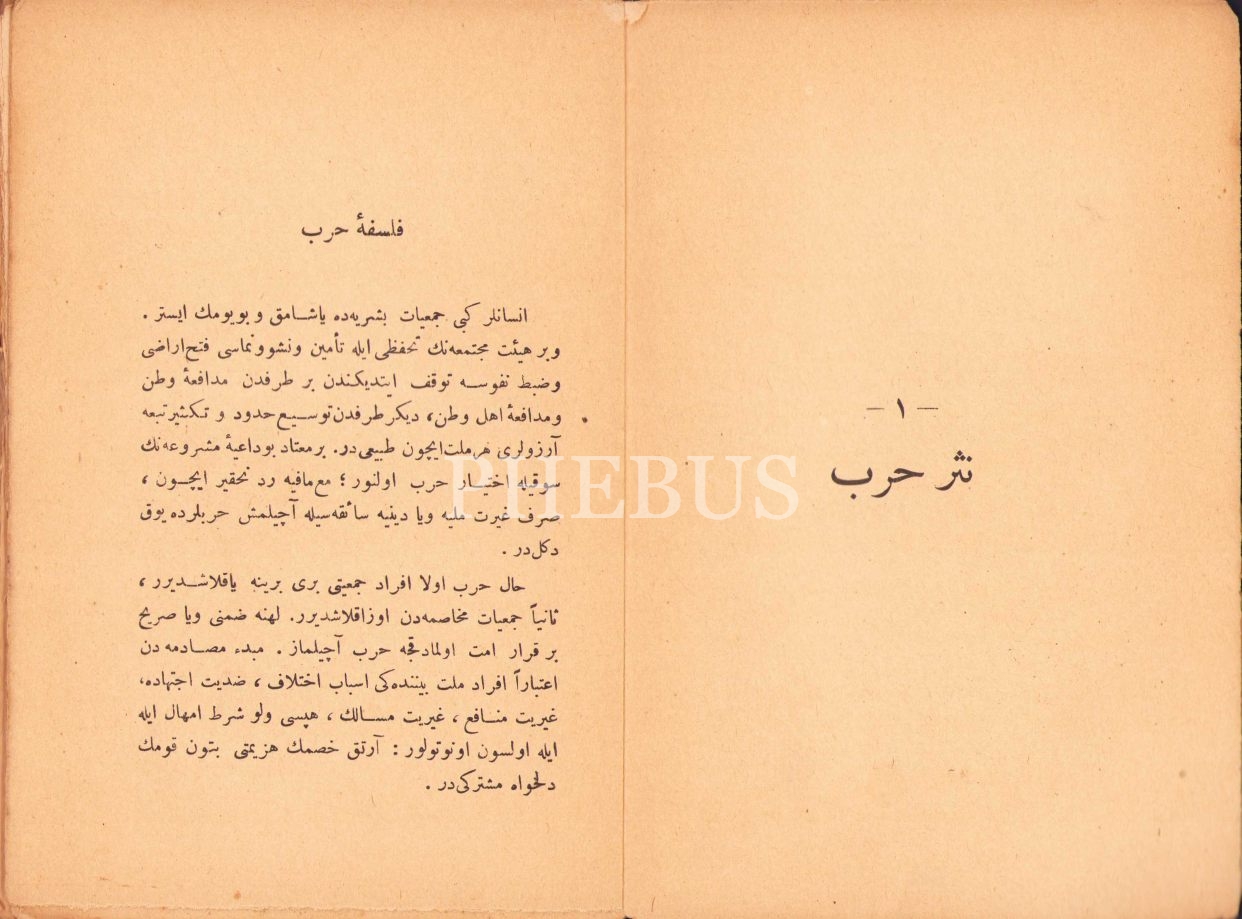 — ١ —
نثر حرب
فلسفهٔ حرب
انسانلر کبی جمعیات بشریه‌ده یاشامق و بویومك ایستر .
و بر هیئت مجتمعه‌نك تحفظی ایله تأمین ونشوونماسی فتح اراضی
وضبط نفوسه توقف ایتدیکندن بر طرفدن مدافعهٔ وطن
ومدافعهٔ اهل وطن، دیکر طرفدن توسیع حدود و تکثیر تبعه
آرزولری هر ملت ایچون طبیعی در. بر معتاد بو داعیهٔ مشروعه‌نك
سوقیله اختیار حرب اولنور ؛ مع مافیه رد تحقیر ایچون ،
صرف غیرت ملیه ویا دینیه سائقه‌سیله آچیلمش حربلرده یوق
دکل در .
حال حرب اولا افراد جمعیتی بری برینه یاقلاشدیرر ،
ثانیاً جمعیات مخاصمه‌دن اوزاقلاشدیرر. لهنه ضمنی ویا صریح
بر قرار امت اولمادقجه حرب آچیلماز . مبدء مصادمه دن
اعتباراً افراد ملت بیننده‌کی اسباب اختلاف ، ضدیت اجتهاده،
غیریت منافع ، غیریت مسالك ، هپسی ولو شرط امهال ایله
ایله اولسون اونوتولور : آرتق خصمك هزیمتی بتون قومك
دلخواه مشترکی در .
PHEBUS